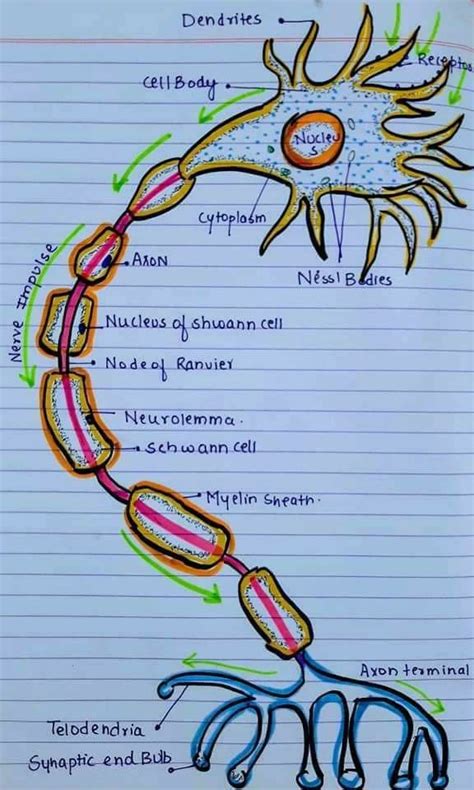 Dendrites
Receptos
Cell Body
Nucleu
s
Cytoplasm
Nessl Bodies
Nerve Impulse
Axon
Nucleus of shwann cell
Node of Ranvier
Neurolemma.
schwann cell
Myelin sheath.
Axon terminal
Telodendria
Synaptic end Bulb